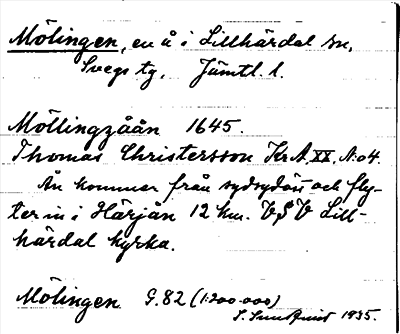 Mölingen, en å i Lillhärdal sn,
Svegs tg, Jämtl. l.
Möllingzåån 1645.
Thomas Christersson Kr.A. XX, N:o 4.
Ån kommer från sydsydöst och fly-
ter in i Härjån 12 km. VSV Lill-
härdal kyrka.
Mölingen G.82 (1:200.000)
S. Sundqvist 1935.